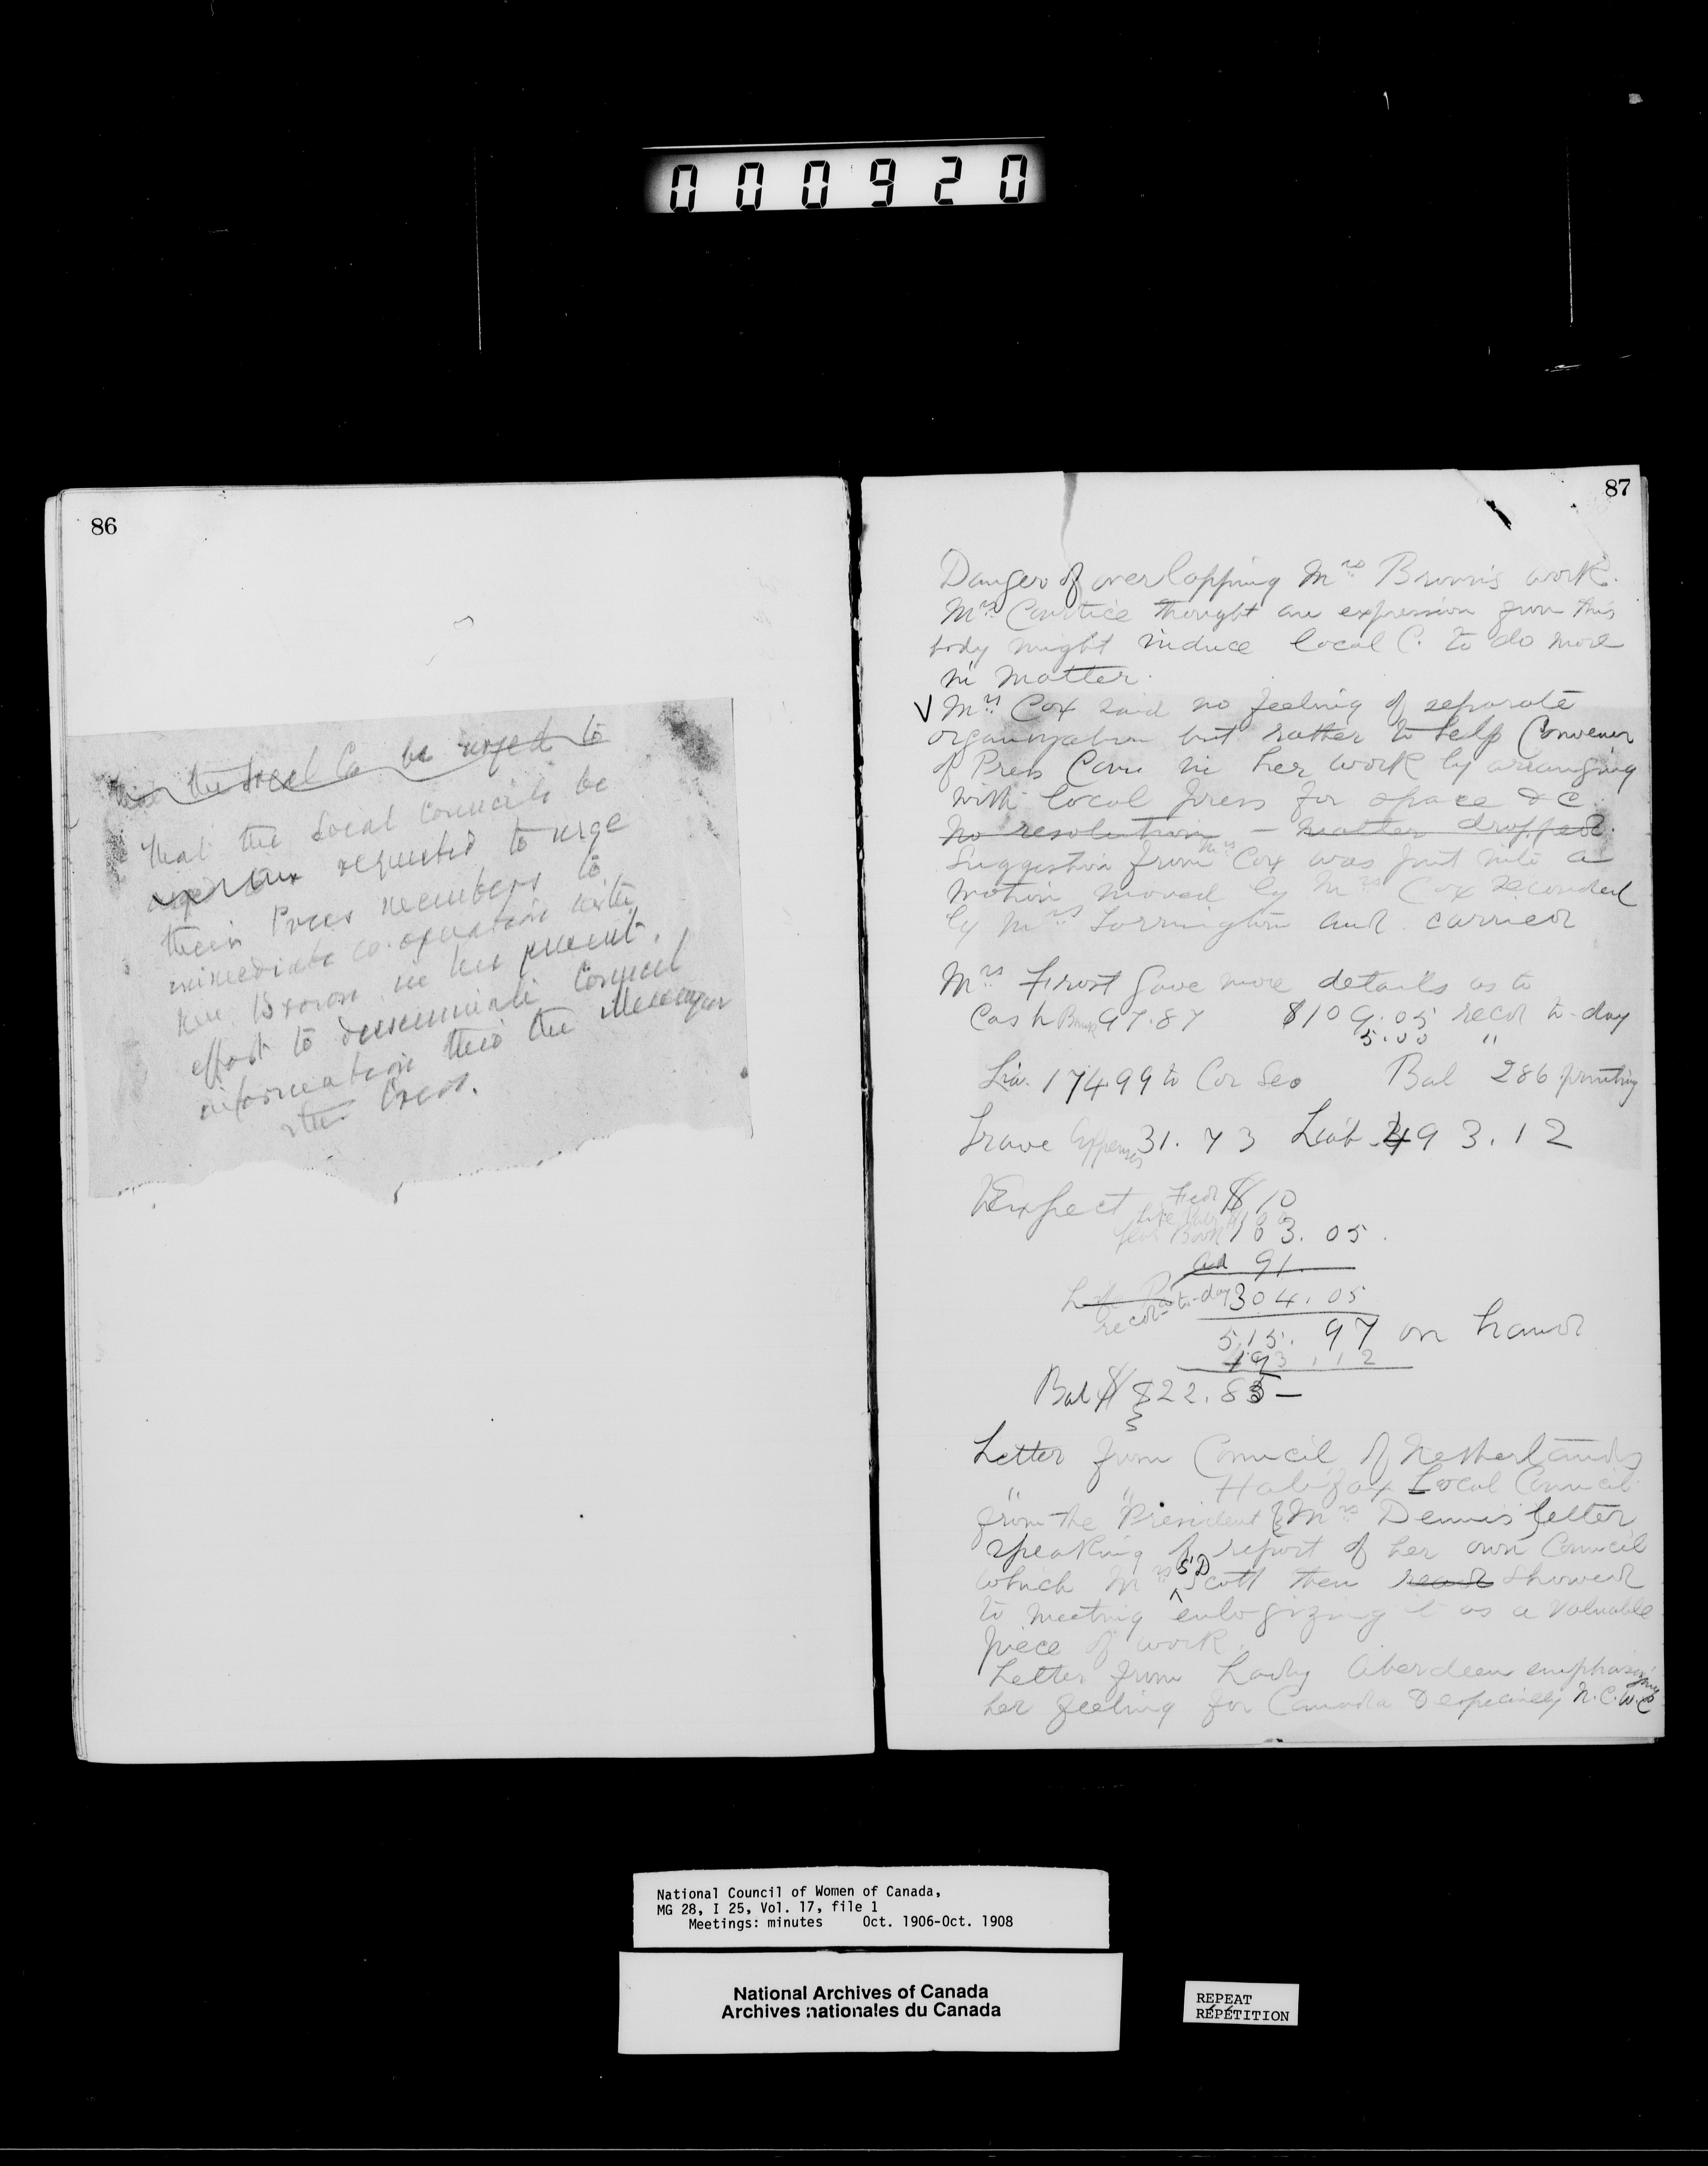 000920
86
that the Local Co be urged to
That the Local Councils be
requested to urge
their Press members to
immediate co-operation with
Mrs Brown in her present
effort to disseminate Council
information thro the
the Press.
87
Danger of overlapping Mrs Brown's work.
Mrs Courtice thought an expression from this
body might induce local C. to do more
in matter.
√ Mrs Cox said no feeling of separate
organization but rather to help Convener
of Press Com in her work by arranging
with local press for space & c.
No resolution – matter dropped.
Suggestion from Mrs Cox was put into a
motion moved by Mrs Cox seconded
by Mrs Torrington and carried
Mrs Frost gave more details as to
Cash Bank 97.87 $109.05 recd to-day
5.00 "
Lia. 174.99 to Cor Sec Bal 286 printing
Trave Expenses 31.73 Liab. 493.12
Expect Fed $10
Year Book 103.05.
Ad 91.
recd to-day 304.05
515.97 on hand
193.12
Bal $ 322.85 –
Letter from Council of Netherlands
" " Halifax Local Council
from the President (Mrs Dennis) letter
speaking of report of her own Council
which Mrs S D Scott then read showed
to meeting eulogizing it as a valuable
piece of work.
Letter from Lady Aberdeen emphasizing
her feeling for Canada & especially N.C.W.C
National Council of Women of Canada,
MG 28, I 25, Vol. 17, file 1
Meetings: minutes Oct. 1906-Oct. 1908
National Archives of Canada
Archives nationales du Canada
REPEAT
RÉPÉTITION